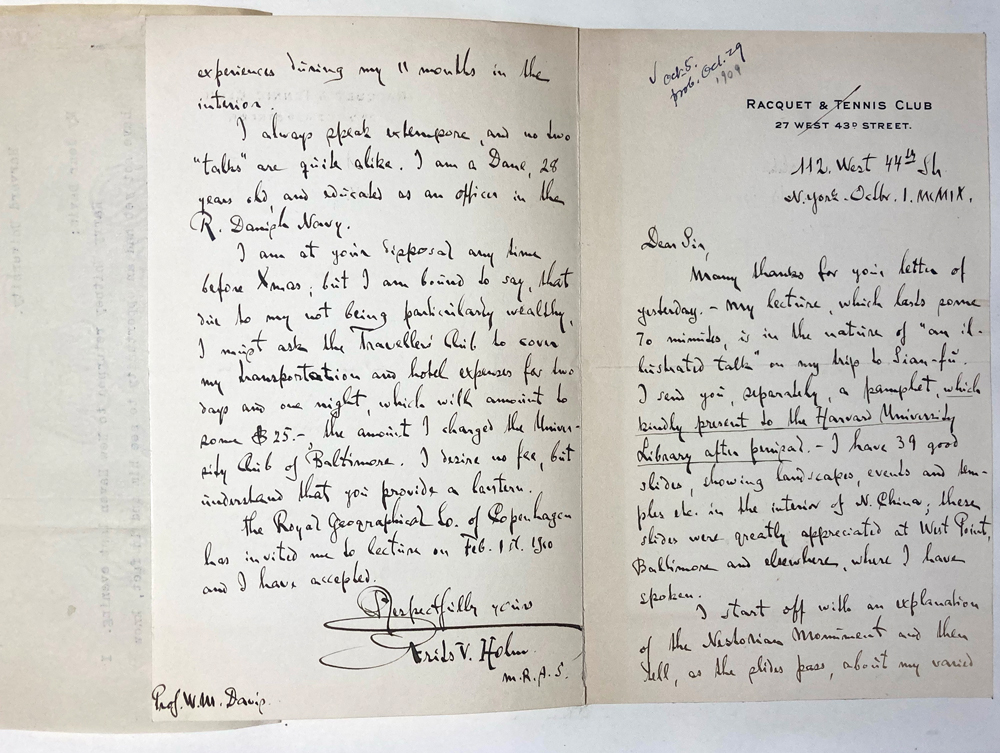 ✓ Oct. 5.
prob. Oct. 29
1909
RACQUET & TENNIS CLUB
27 WEST 43D STREET.
112. West 44th St
N.York - Octbr. 1. MCMIX.
Dear Sir,
Many thanks for your letter of
yesterday. - My lecture, which lasts some
70 minutes, is in the nature of "an il-
lustrated talk" on my trip to Sian-fu.
I send you, separately, a pamphlet, which
kindly present to the Harvard University
Library after perusal. - I have 39 good
slides, showing landscapes, events and tem-
ples etc. in the interior of N. China; these
slides were greatly appreciated at West Point,
Baltimore and elsewhere, where I have
spoken.
I start off with an explanation
of the Nestorian Monument and then
tell, as the slides pass, about my varied
experiences during my 11 months in the
interior.
I always speak extempore, and no two
"talks" are quite alike. I am a Dane, 28
years old, and educated as an officer in the
R. Danish Navy.
I am at your disposal any time
before Xmas; but I am bound to say, that
due to my not being particularly wealthy,
I must ask the Travellers' Club to cover
my transportation and hotel expenses for two
days and one night, which will amount to
some $25.-, the amount I charged the Univer-
sity Club of Baltimore. I desire no fee, but
understand that you provide a lantern.
The Royal Geographical So. of Copenhagen
has invited me to lecture on Feb. 1st. 1910
and I have accepted.
Respectfully yours
Frits V. Holm.
M.R.A.S.
Prof. W.M. Davis.